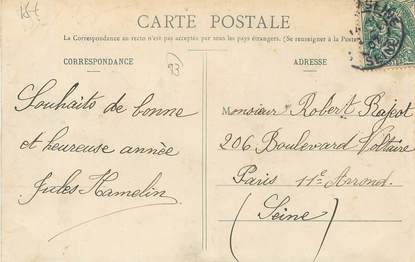 15t
CARTE POSTALE
La Correspondance au recto n'est pas acceptée par tous les pays étrangers. (Se renseigner à la Poste)
CORRESPONDANCE
93
ADRESSE
Souhaits de bonne
et heureuse année
Jules Hamelin
Monsieur Robert Rajeot
206 Boulevard Voltaire
Paris 11e Arrond.
(Seine)